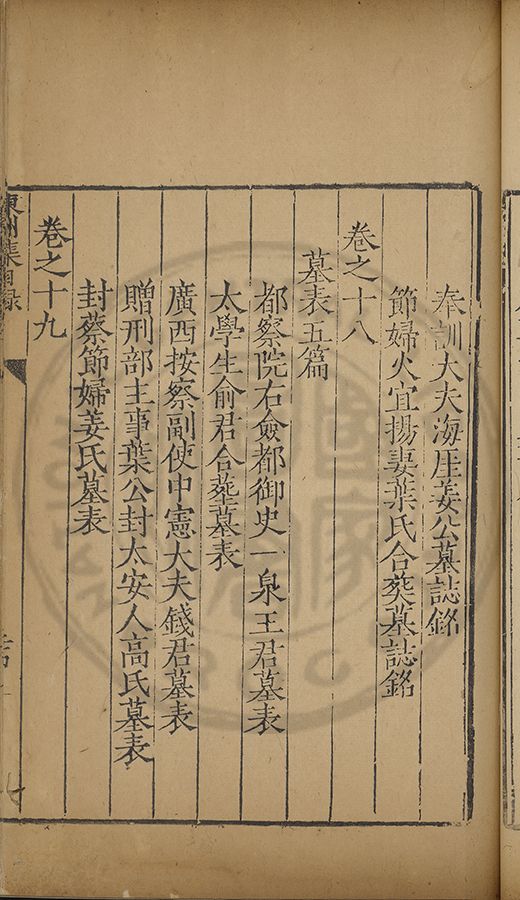 奉訓大夫海厓姜公墓誌銘
節婦火宜揚妻葉氏合葬墓誌銘
卷之十八
墓表五篇
都察院右僉都御史一泉王君墓表
太學生俞君合葬墓表
廣西按察副使中憲大夫錢君墓表
贈刑部主事葉公封太安人高氏墓表
封蔡節婦姜氏墓表
卷之十九
東洲集目錄